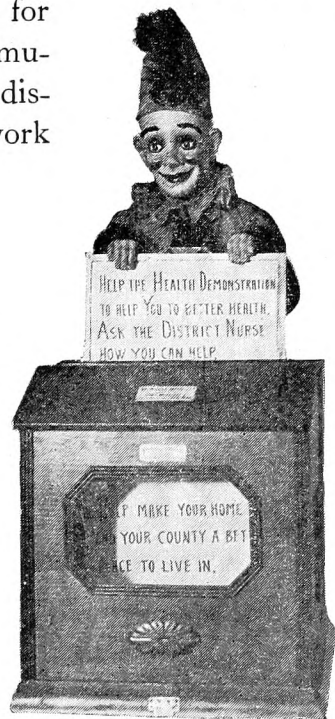 for
mu-
dis-
work
HELP THE HEALTH DEMONSTRATION
TO HELP YOU TO BETTER HEALTH.
ASK THE DISTRICT NURSE
HOW YOU CAN HELP.
LP MAKE YOUR HOME
YOUR COUNTY A BET
CE TO LIVE IN.